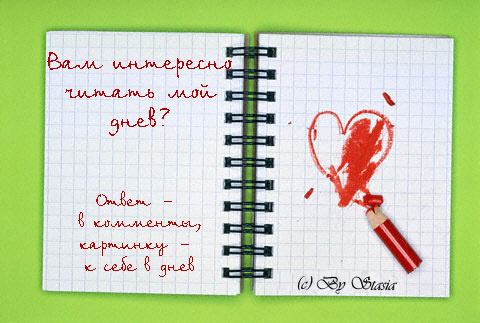 Вам интересно
читать мой
днев?
Ответ -
в комменты,
картинку -
к себе в днев
(c) By Stasia